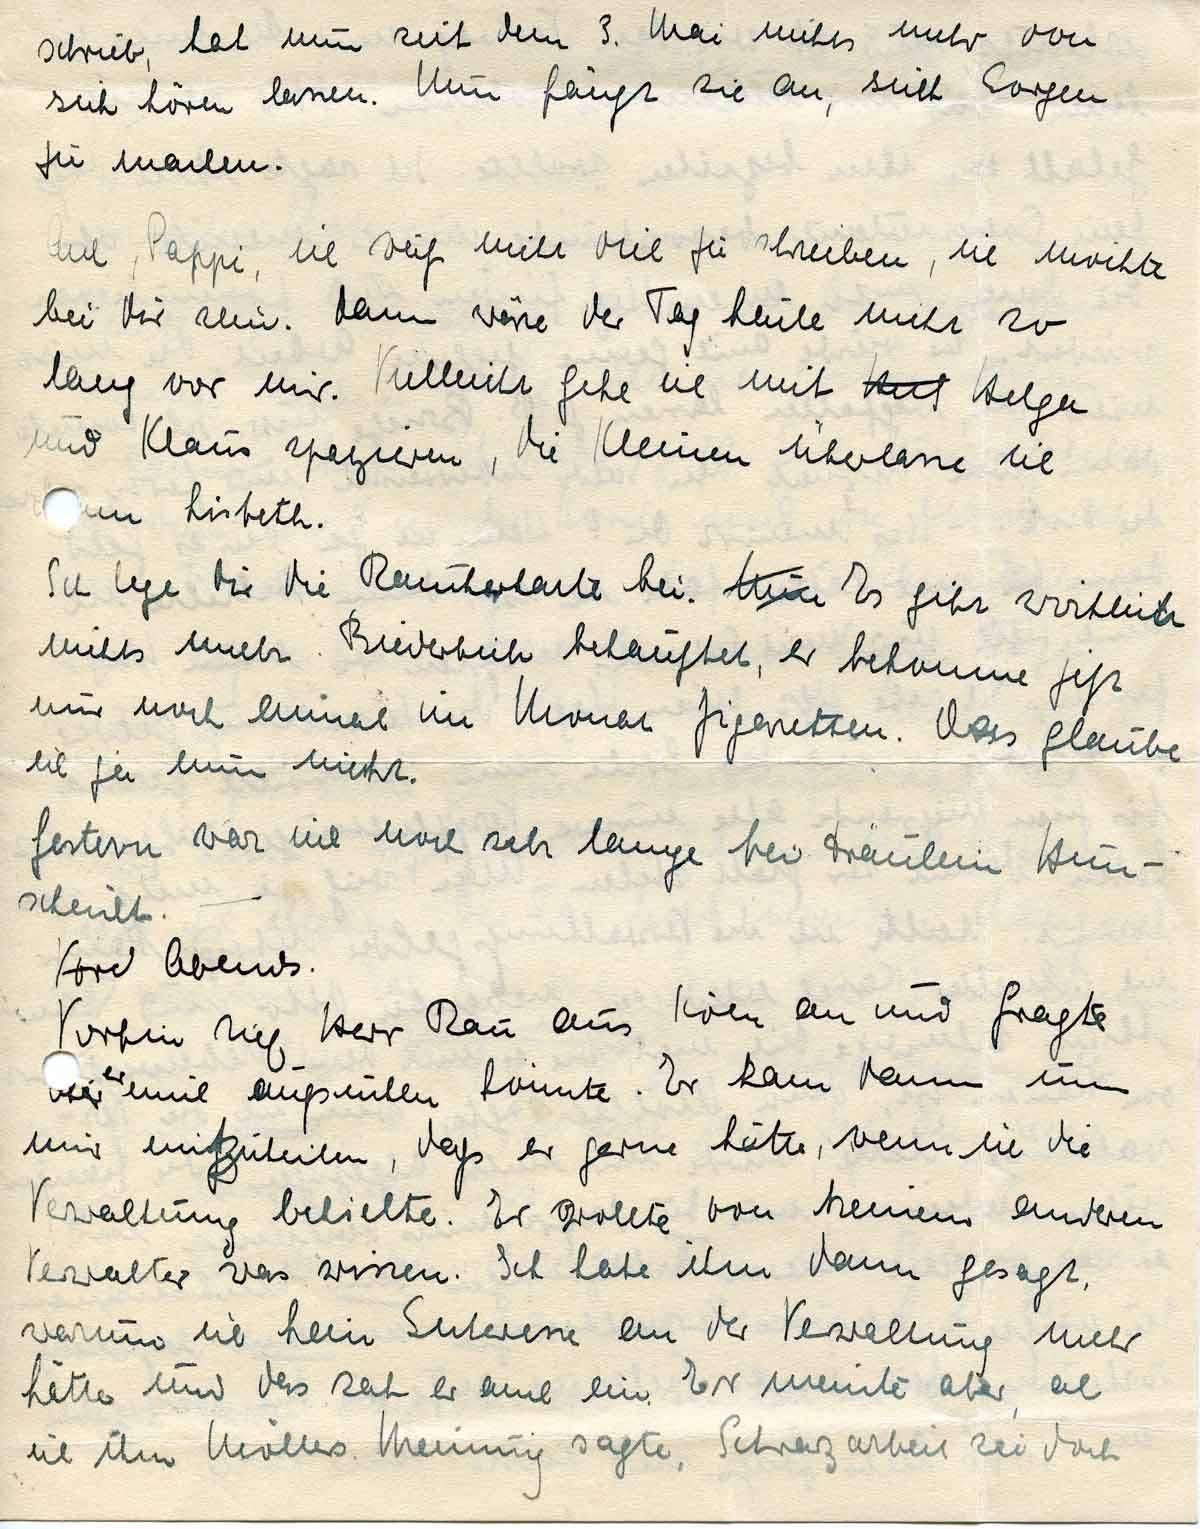 schrieb, hat nun seit dem 3. Mai nichts mehr von
sich hören lassen. Nun fängt sie an, sich Sorgen
zu machen.
Ach, Pappi, ich weiß nicht viel zu schreiben, ich möchte
bei dir sein. Dann wäre der Tag heute nicht so
lang vor mir. Vielleicht gehe ich mit Helga
und Klaus spazieren, die Kleinen überlasse ich
dann Lisbeth.
Ich lege dir die Raucherkarte bei. Es gibt wirklich
nichts mehr. behauptet, er bekomme jetzt
nur noch einmal im Monat Zigaretten. Das glaube
ich ja nun nicht.
Gestern war ich noch sehr lange bei Fräulein Hun-
scheidt.
Abends.
Vorhin rief Herr Rau aus Köln an und fragte
er mich aufsuchen könnte. Er kam dann um
mir mitzuteilen, dass er gerne hätte, wenn ich die
Verwaltung behielte. Er wollte von keinem anderen
Verwalter was wissen. Ich habe ihm dann gesagt,
warum ich kein Interesse an der Verwaltung mehr
hätte und das sah er auch ein. Er meinte aber, als
ich ihm Möllers Meinung sagte, Schwarzarbeit sei doch